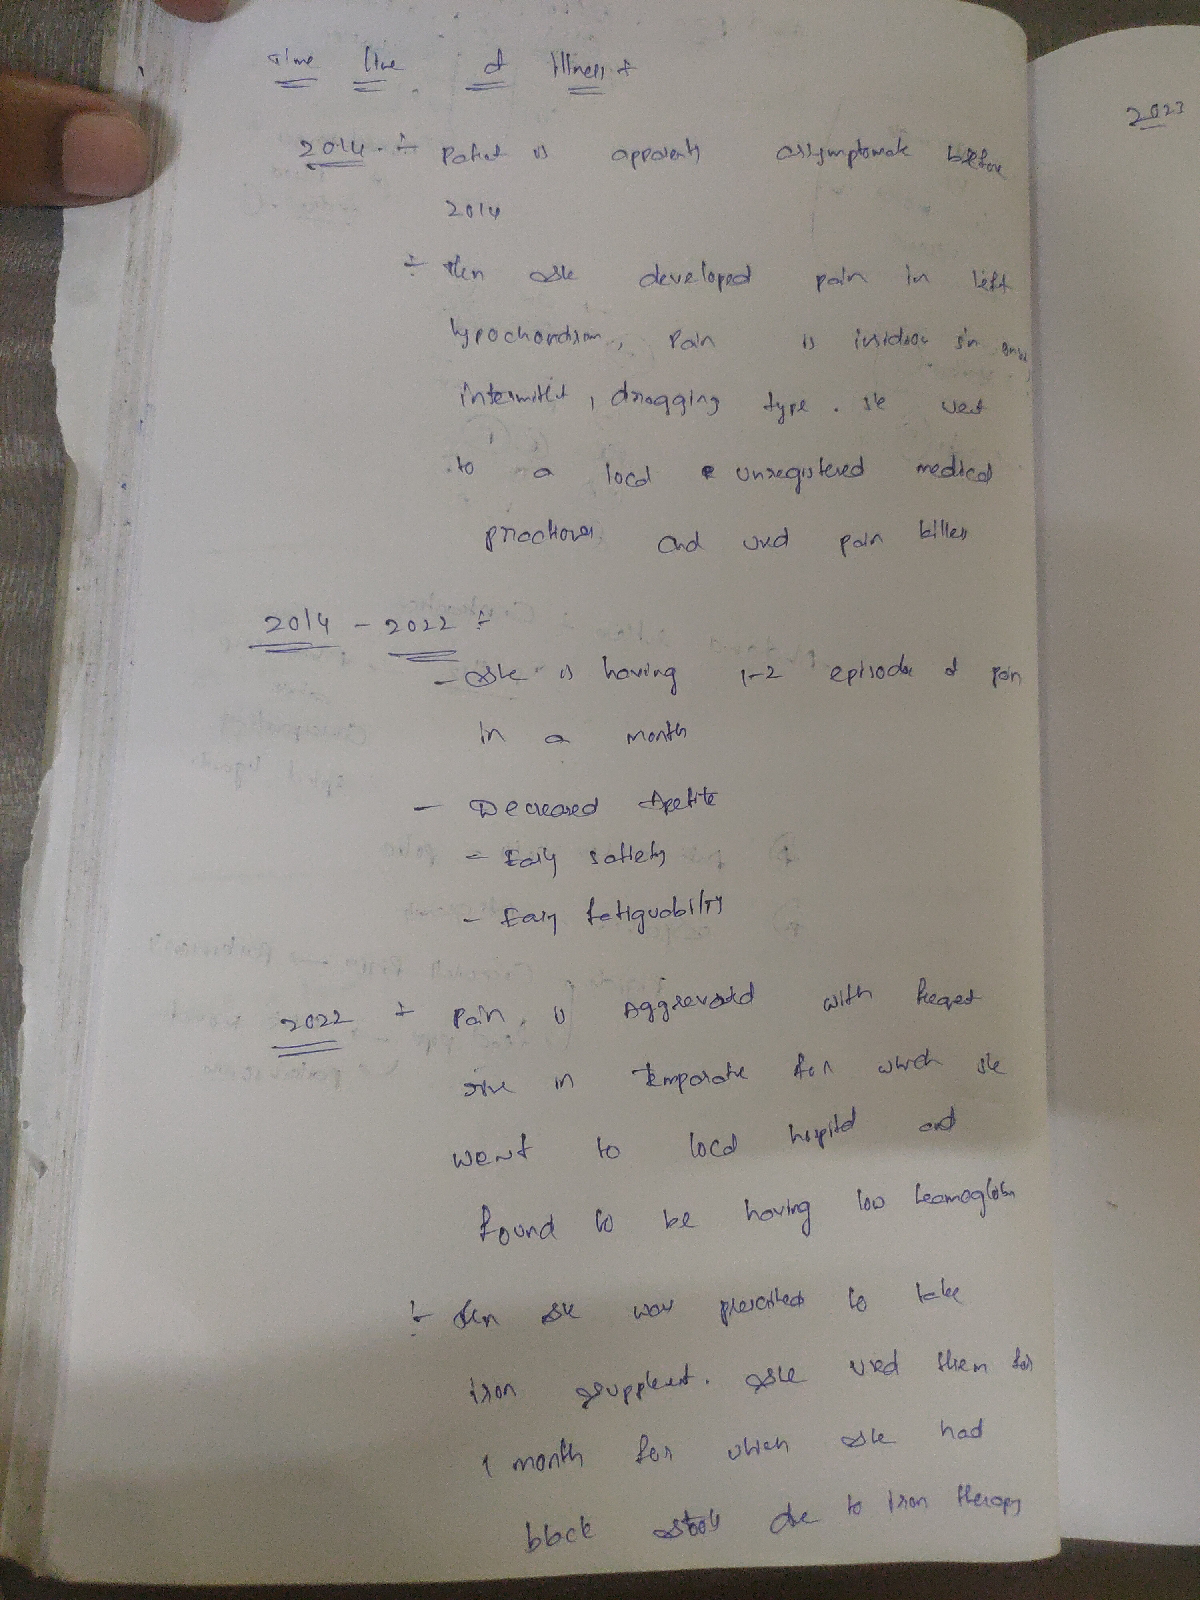 Time line of illness :-
2014 :- Patient is apparently assymptomatic before
2014
:- then she developed pain in left
hypochondrium, Pain is insidious in onset,
intermittent, dragging type. she went
to a local unregistered medical
practitioner and used pain killers
2014 - 2022 :-
- she is having 1-2 episode of pain
in a month
- Decreased Apetite
- Early satiety
- Easy fatiguability
2022 :- Pain is Aggrevated with frequent
rise in temparature for which she
went to local hospital and
found to be having low heamoglobin
:- then she was prescribed to take
iron supplement. she used them for
1 month for which she had
black stools due to iron therapy
2023